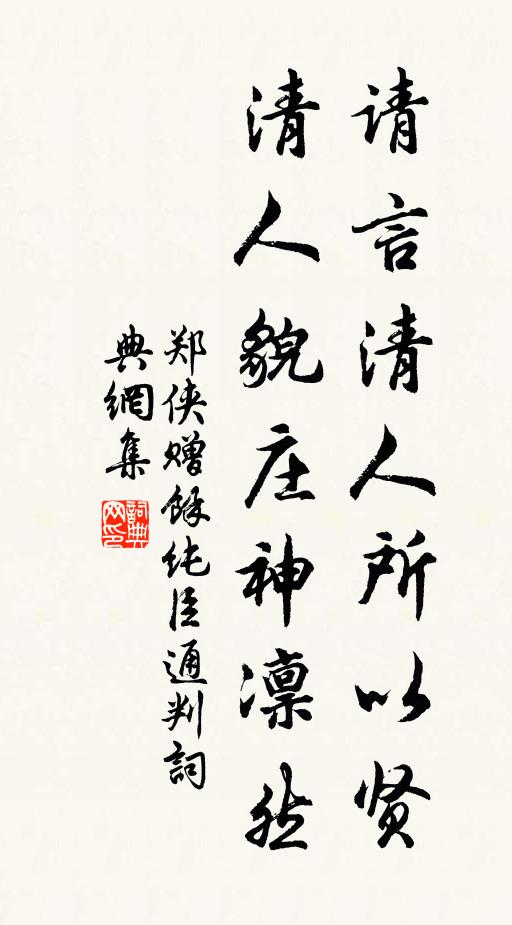 请言清人所以贤
清人貌庄神凛然
郑侠赠馀纯臣通判詞
典網集
詞典網印